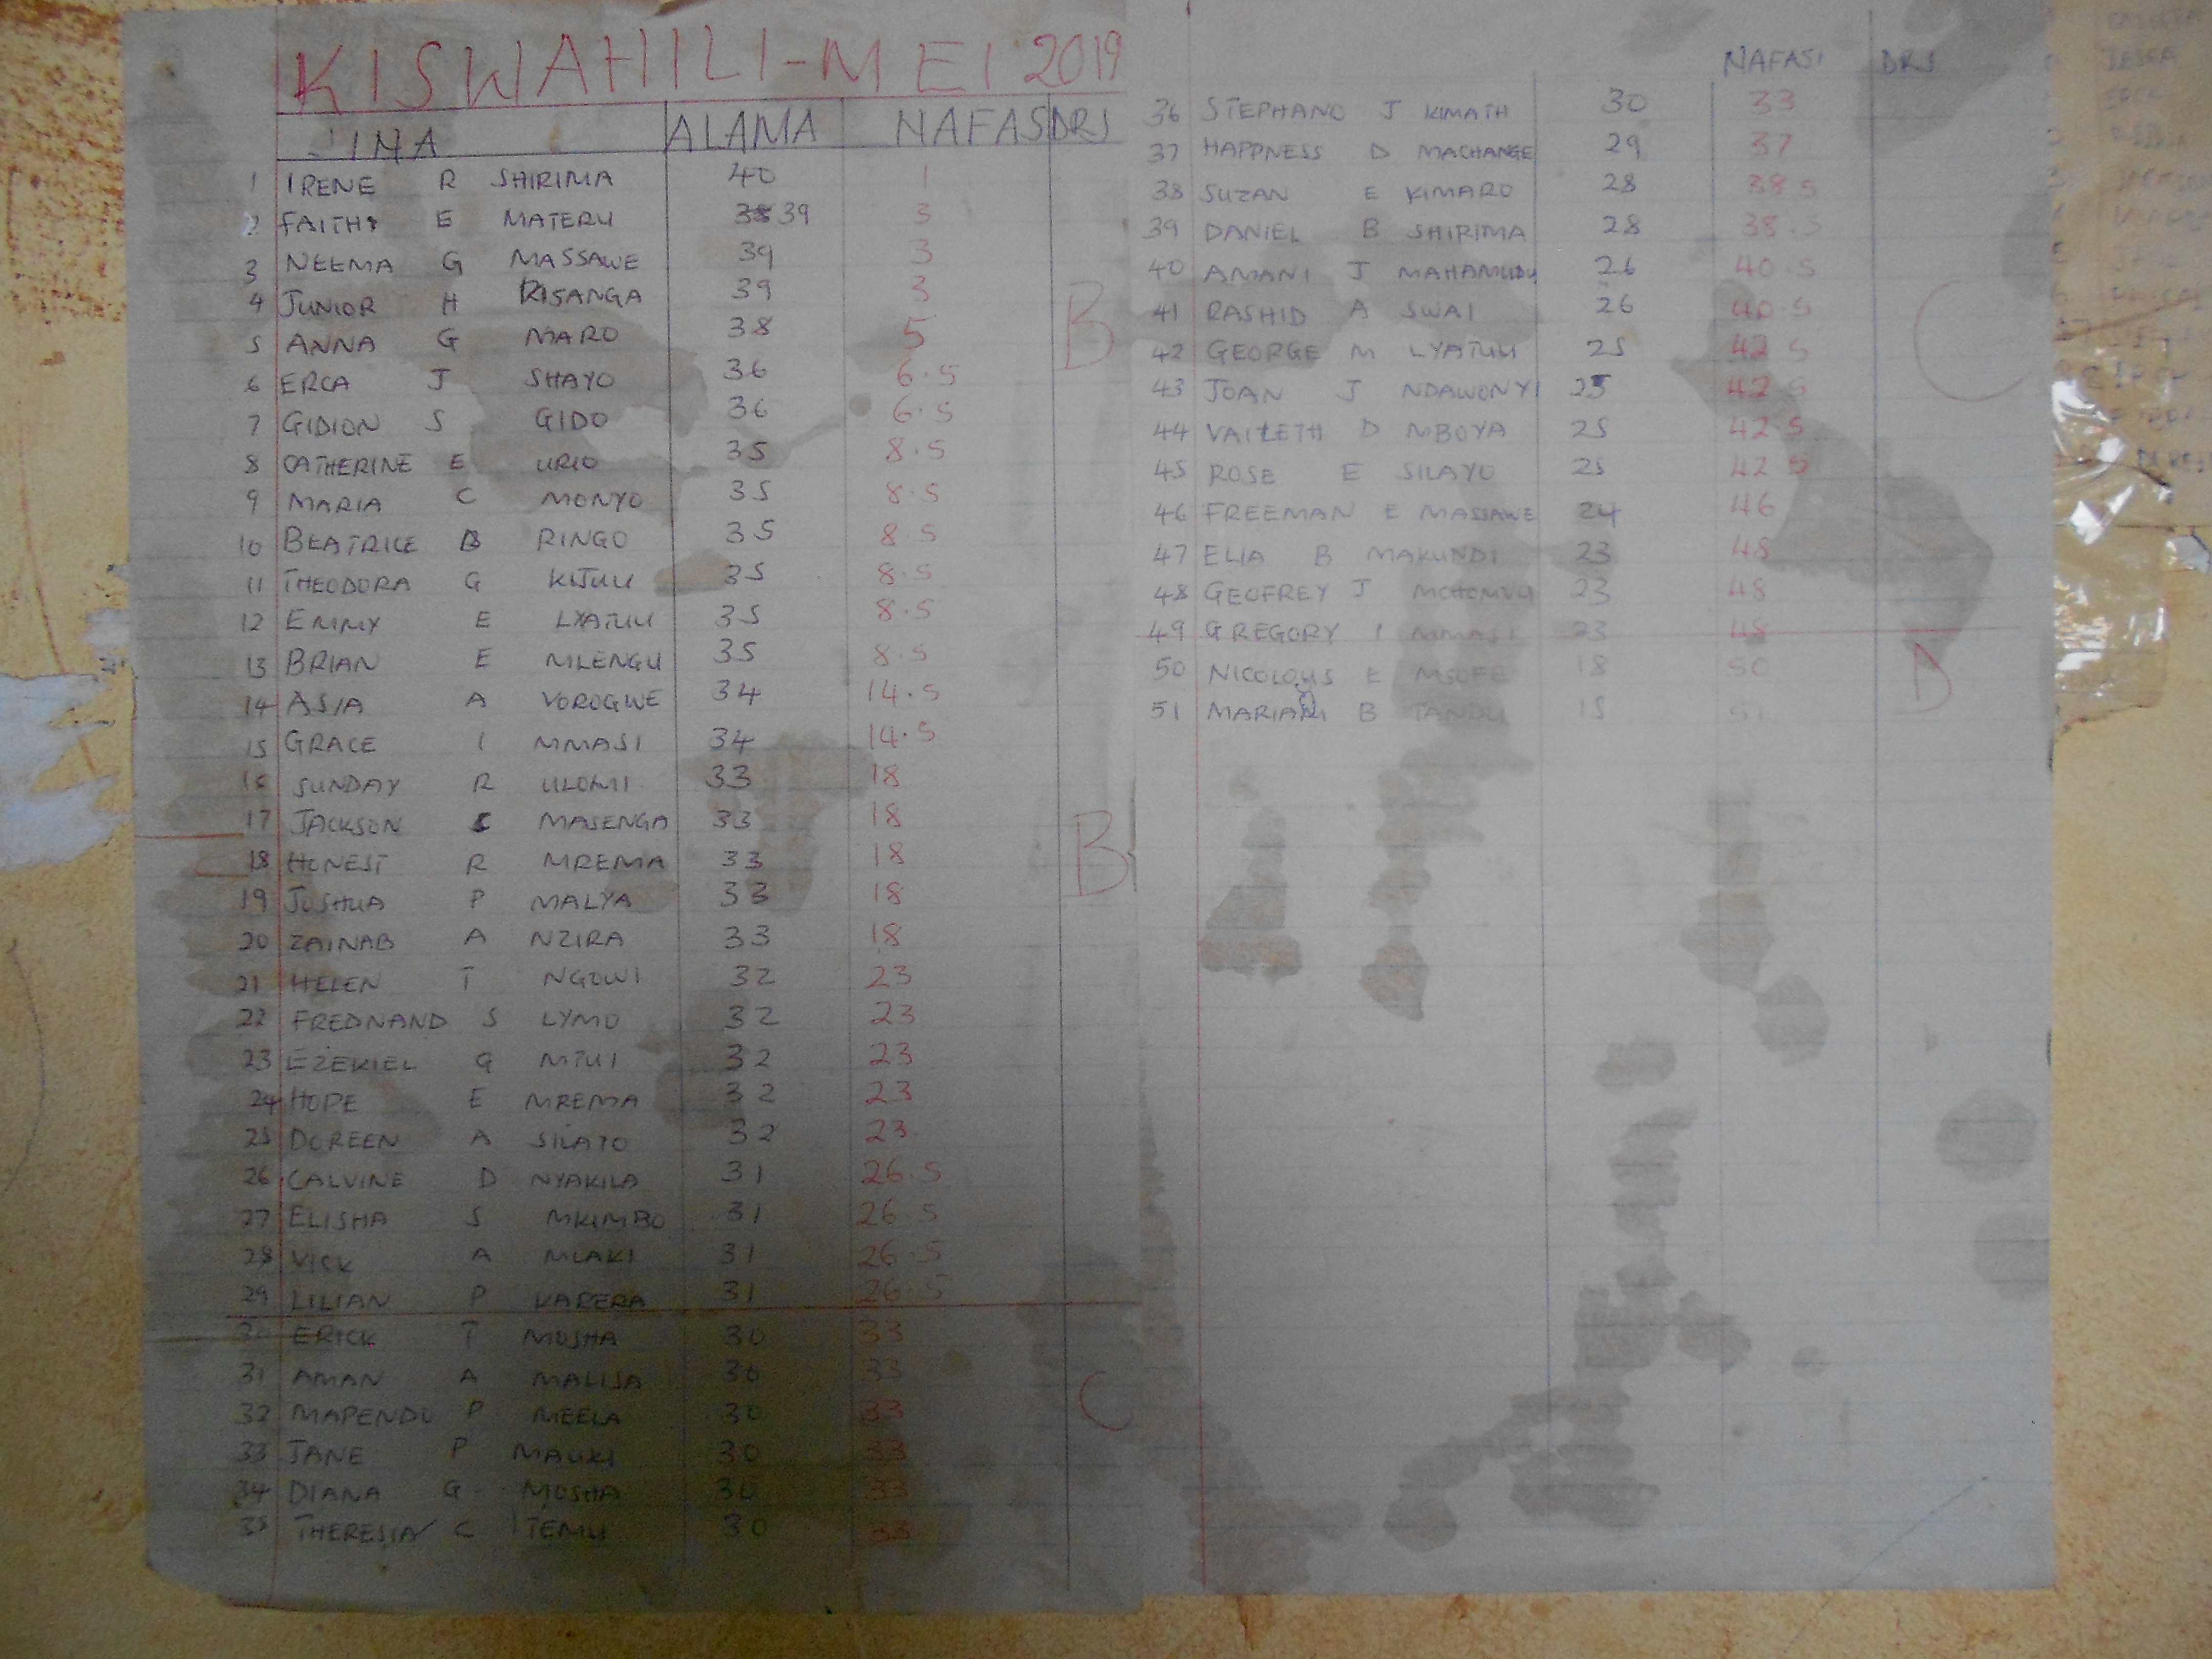 KISWAHILI-MEI 2019
JINA ALAMA NAFASI DRJ
1 IRENE R SHIRIMA 40 1
2 FAITH E MATERU 39 3
3 NEEMA G MASSAWE 39 3
4 JUNIOR H KISANGA 39 3
5 ANNA G MARO 38 5
6 ERCA J SHAYO 36 6.5
7 GIDION S GIDO 36 6.5
8 CATHERINE E URIO 35 8.5
9 MARIA C MONYO 35 8.5
10 BEATRICE B RINGO 35 8.5
11 THEODORA G KIJUU 35 8.5
12 EMMY E LYATUU 35 8.5
13 BRIAN E MLENGU 35 8.5
14 ASIA A VOROGWE 34 14.5
15 GRACE I MMASI 34 14.5
16 SUNDAY R ULOMI 33 18
17 JACKSON MASENGA 33 18
18 HONEST R MREMA 33 18
19 JOSHUA P MALYA 33 18
20 ZAINAB A NZIRA 33 18
21 HELEN T NGOWI 32 23
22 FREDNAND S LYMO 32 23
23 EZEKIEL G MTUI 32 23
24 HOPE E MREMA 32 23
25 DOREEN A SILAYO 32 23
26 CALVINE D NYAKILA 31 26.5
27 ELISHA S MKIMBO 31 26.5
28 VICK A MLAKI 31 26.5
29 LILIAN P KARERA 31 26.5
30 ERICK T MOSHA 30 33
31 AMAN A MALISA 30 33
32 MAPENDO P MEELA 30 33
33 JANE P MAUKI 30 33
34 DIANA G MOSHA 30 33
35 THERESIA C TEMU 30 33
B
B
C
NAFASI DRJ
36 STEPHANO J KIMATH 30 33
37 HAPPNESS D MACHANGE 29 37
38 SUZAN E KIMARO 28 38.5
39 DANIEL B SHIRIMA 28 38.5
40 AMANI J MAHAMUDU 26 40.5
41 RASHID A SWAI 26 40.5
42 GEORGE M LYATUU 25 42.5
43 JOAN J NDAWONYI 25 42.5
44 VAILETH D MBOYA 25 42.5
45 ROSE E SILAYO 25 42.5
46 FREEMAN E MASSAWE 24 46
47 ELIA B MAKUNDI 23 48
48 GEOFREY J MCHOMVU 23 48
49 GREGORY I MMASI 23 48
50 NICOLOUS E MSOFE 18 50
51 MARIAM B TANDU 15 51
C
D